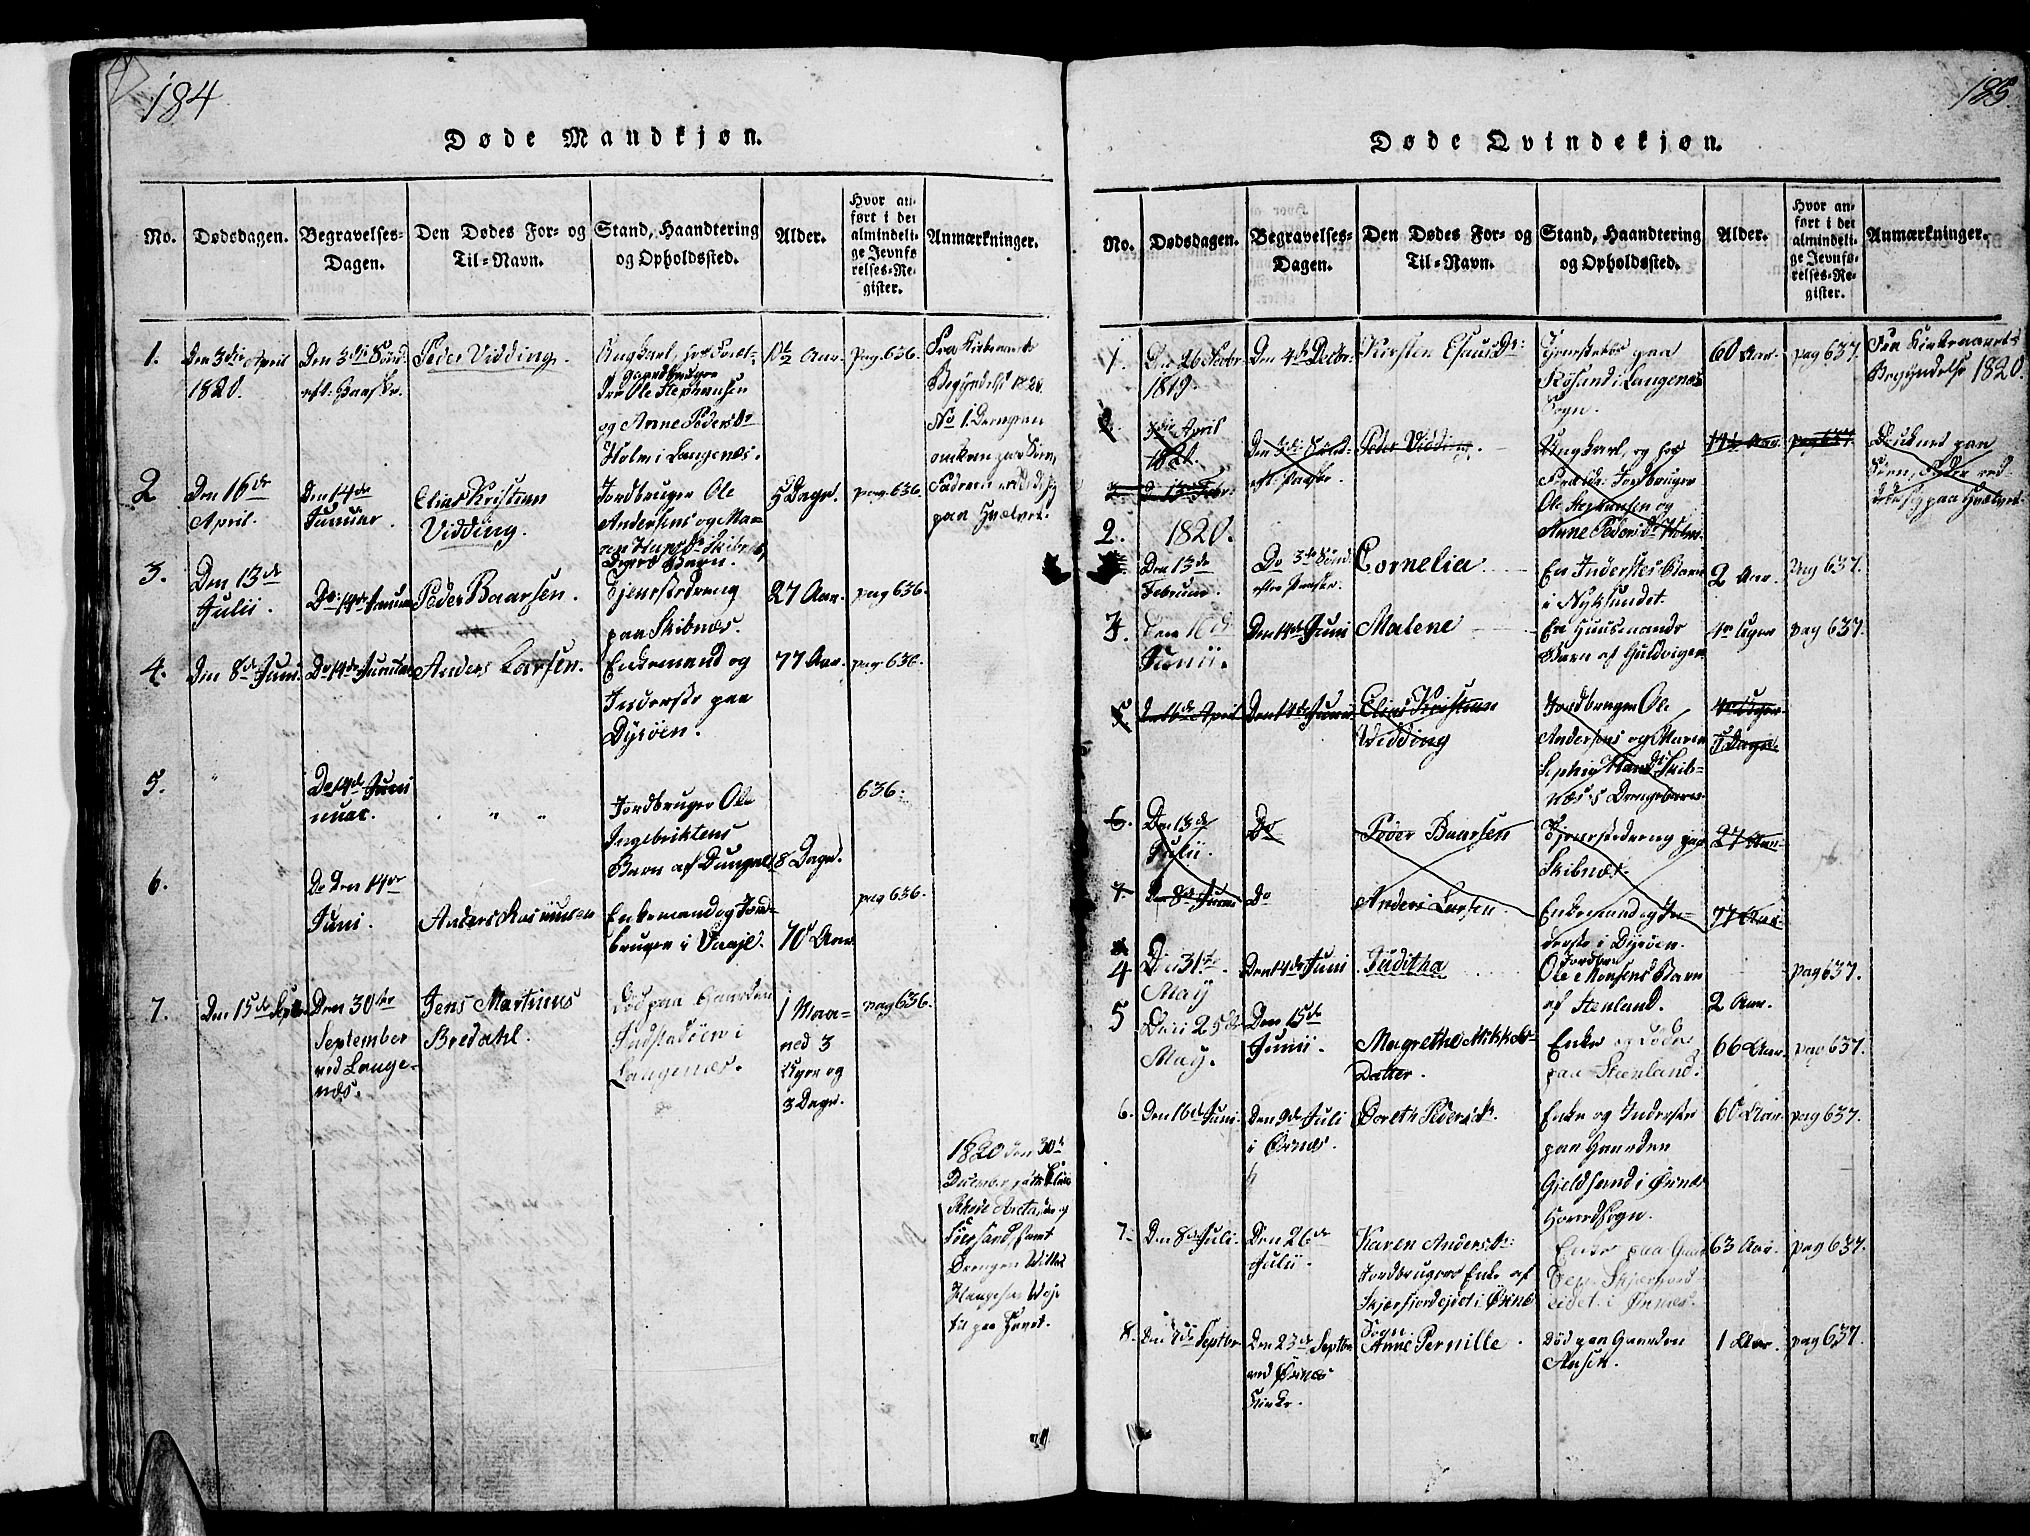 184
Døde Mandkjøn.
No.
Dødsdagen.
Begravelses-
Dagen.
Den Dødes For- og
Til-Navn.
Stand, Haandtering
og Opholdssted.
Alder.
Hvor an-
ført i det
almindeli-
ge Jevnfø-
relses-Re-
gister.
Anmærkninger.
1.
Den 3die April
1820.
Den 3die Sønd.
eft. Paaske.
Peder Vidding.
Ungkarl, hos Foræl-
Gaardbruger
dre Ole Stephensen
og Anne Pedersdr
Holm i Langenæs.
pag. 636.
Fra Kirkeaarets
Begyndelse 1820.
No 1. Drengen
omkom paa Søen,
paa Hvalvet.
2
Den 16de
April.
Den 14de
Januar.
Elias Kristian
Vidding.
Jordbruger Ole
Andersens og Ma-
5 Dage.
pag. 636.
3.
Den 13de
Julii.
Do 14de Januar
Peder Baarsen.
Tjenestedreng
paa Skibnæs.
27 Aar.
pag 636.
4.
Den 8de Juni.
Do 14de Januar
Anders Larsen.
Enkemand og
Inderste paa
Dyrøen.
77 Aar.
pag. 636.
5.
Do 14de Juni
nuar.
" "
Jordbruger Ole
Ingebrigtens
Barn af
8 Dage.
636.
6.
Do Den 14de
Juni.
Anders Rasmusen
Enkemand og Jord-
bruger i
70 Aar
pag 636.
7.
Den 15de Septr
Den 30te
September
ved Lange-
næs.
Jens Martinus
Bredahl.
Død paa Gaarden
i
Langenæs.
1 Maa-
ned 3
Uger og
3 Dage.
pag 636.
1820 den 30te
December
Drengen
paa Havet.
185.
Døde Qvindekjøn.
No.
Dødsdagen.
Begravelses-
Dagen.
Den Dødes For- og
Til-Navn.
Stand, Haandtering
og Opholdssted.
Alder.
Hvor an-
ført i det
almindeli-
ge Jevnfø-
relses-Re-
gister.
Anmærkninger.
1.
Den 26 Octbr
1819.
Den 4de Decbr.
Kirsten Esausdr:
Tjenestetøs paa
i Langenæs
Sogn.
60 Aar.
pag 637.
Fra Kirkeaarets
Begyndelse 1820.
2.
3die April
1820.
Den 3die Sønd.
eft. Paaske.
Peder Vidding.
Ungkarl, og hos
Forældr. Jordbruger
Ole Stephensen og
Anne Pedersdr Holm.
pag 637
paa Hvalvet.
3.
D. 13de Febr.
2.
1820.
Den 13de
Februar.
Do 3die Sønd.
efter Paaske.
Cornelia
En Inderstes Barn
i Nyksundet.
2 Aar.
Pag 637.
3.
Den 16de
Junii.
Den 14de Juni
Malene
En Huusmands
Barn af Guldvigen
4re Uger
pag 637.
5
Den 16de April
Den 14de Juni
Elias Kristian
Vidding
Jordbruger Ole
Andersens og Maren
Sephia Hansdr Skib-
næs's Drengebarn.
4re Uger
5 Dage.
6.
Den 13de
Julii.
Do
Peder Baarsen
Tjenestedreng paa
Skibnæs.
27 Aar.
7.
Den 8de Juni
Do
Anders Larsen.
Enkemand og In-
derste i Dyrøen.
77 Aar.
4
Den 31te
May
Den 14de Juni
Juditha
Jordbr.
Ole Monsens Barn
af Stenland.
2 Aar.
pag 637.
5
Den 25de
May.
Den 15de
Junii.
Magrethe Mikkels-
Datter.
Enke og
paa Stenland.
66 Aar.
pag 637.
6.
Den 16de Juni
Den 9de Juli
i Øxnæs.
Doreth Pedersdr.
Enke og Inderste
paa Gaarden
Gieldsund i Øxnæs
Hovedsogn.
60 Aar.
pag 637.
7.
Den 8de Juli.
Den 26de
Julii.
Karen Andersdr:
Jordbrugers Enke af
Skjærfjordejdet i Øxnæs
Sogn.
Enke paa Gaar-
den Skjærfjord-
eidet i Øxnæs.
63 Aar.
pag 637.
8.
Den 7de Septbr
Den 23de Septbr
ved Øxnæs
Kirke.
Anne Pernille.
Død paa Gaarden
1 Aar.
pag 637.